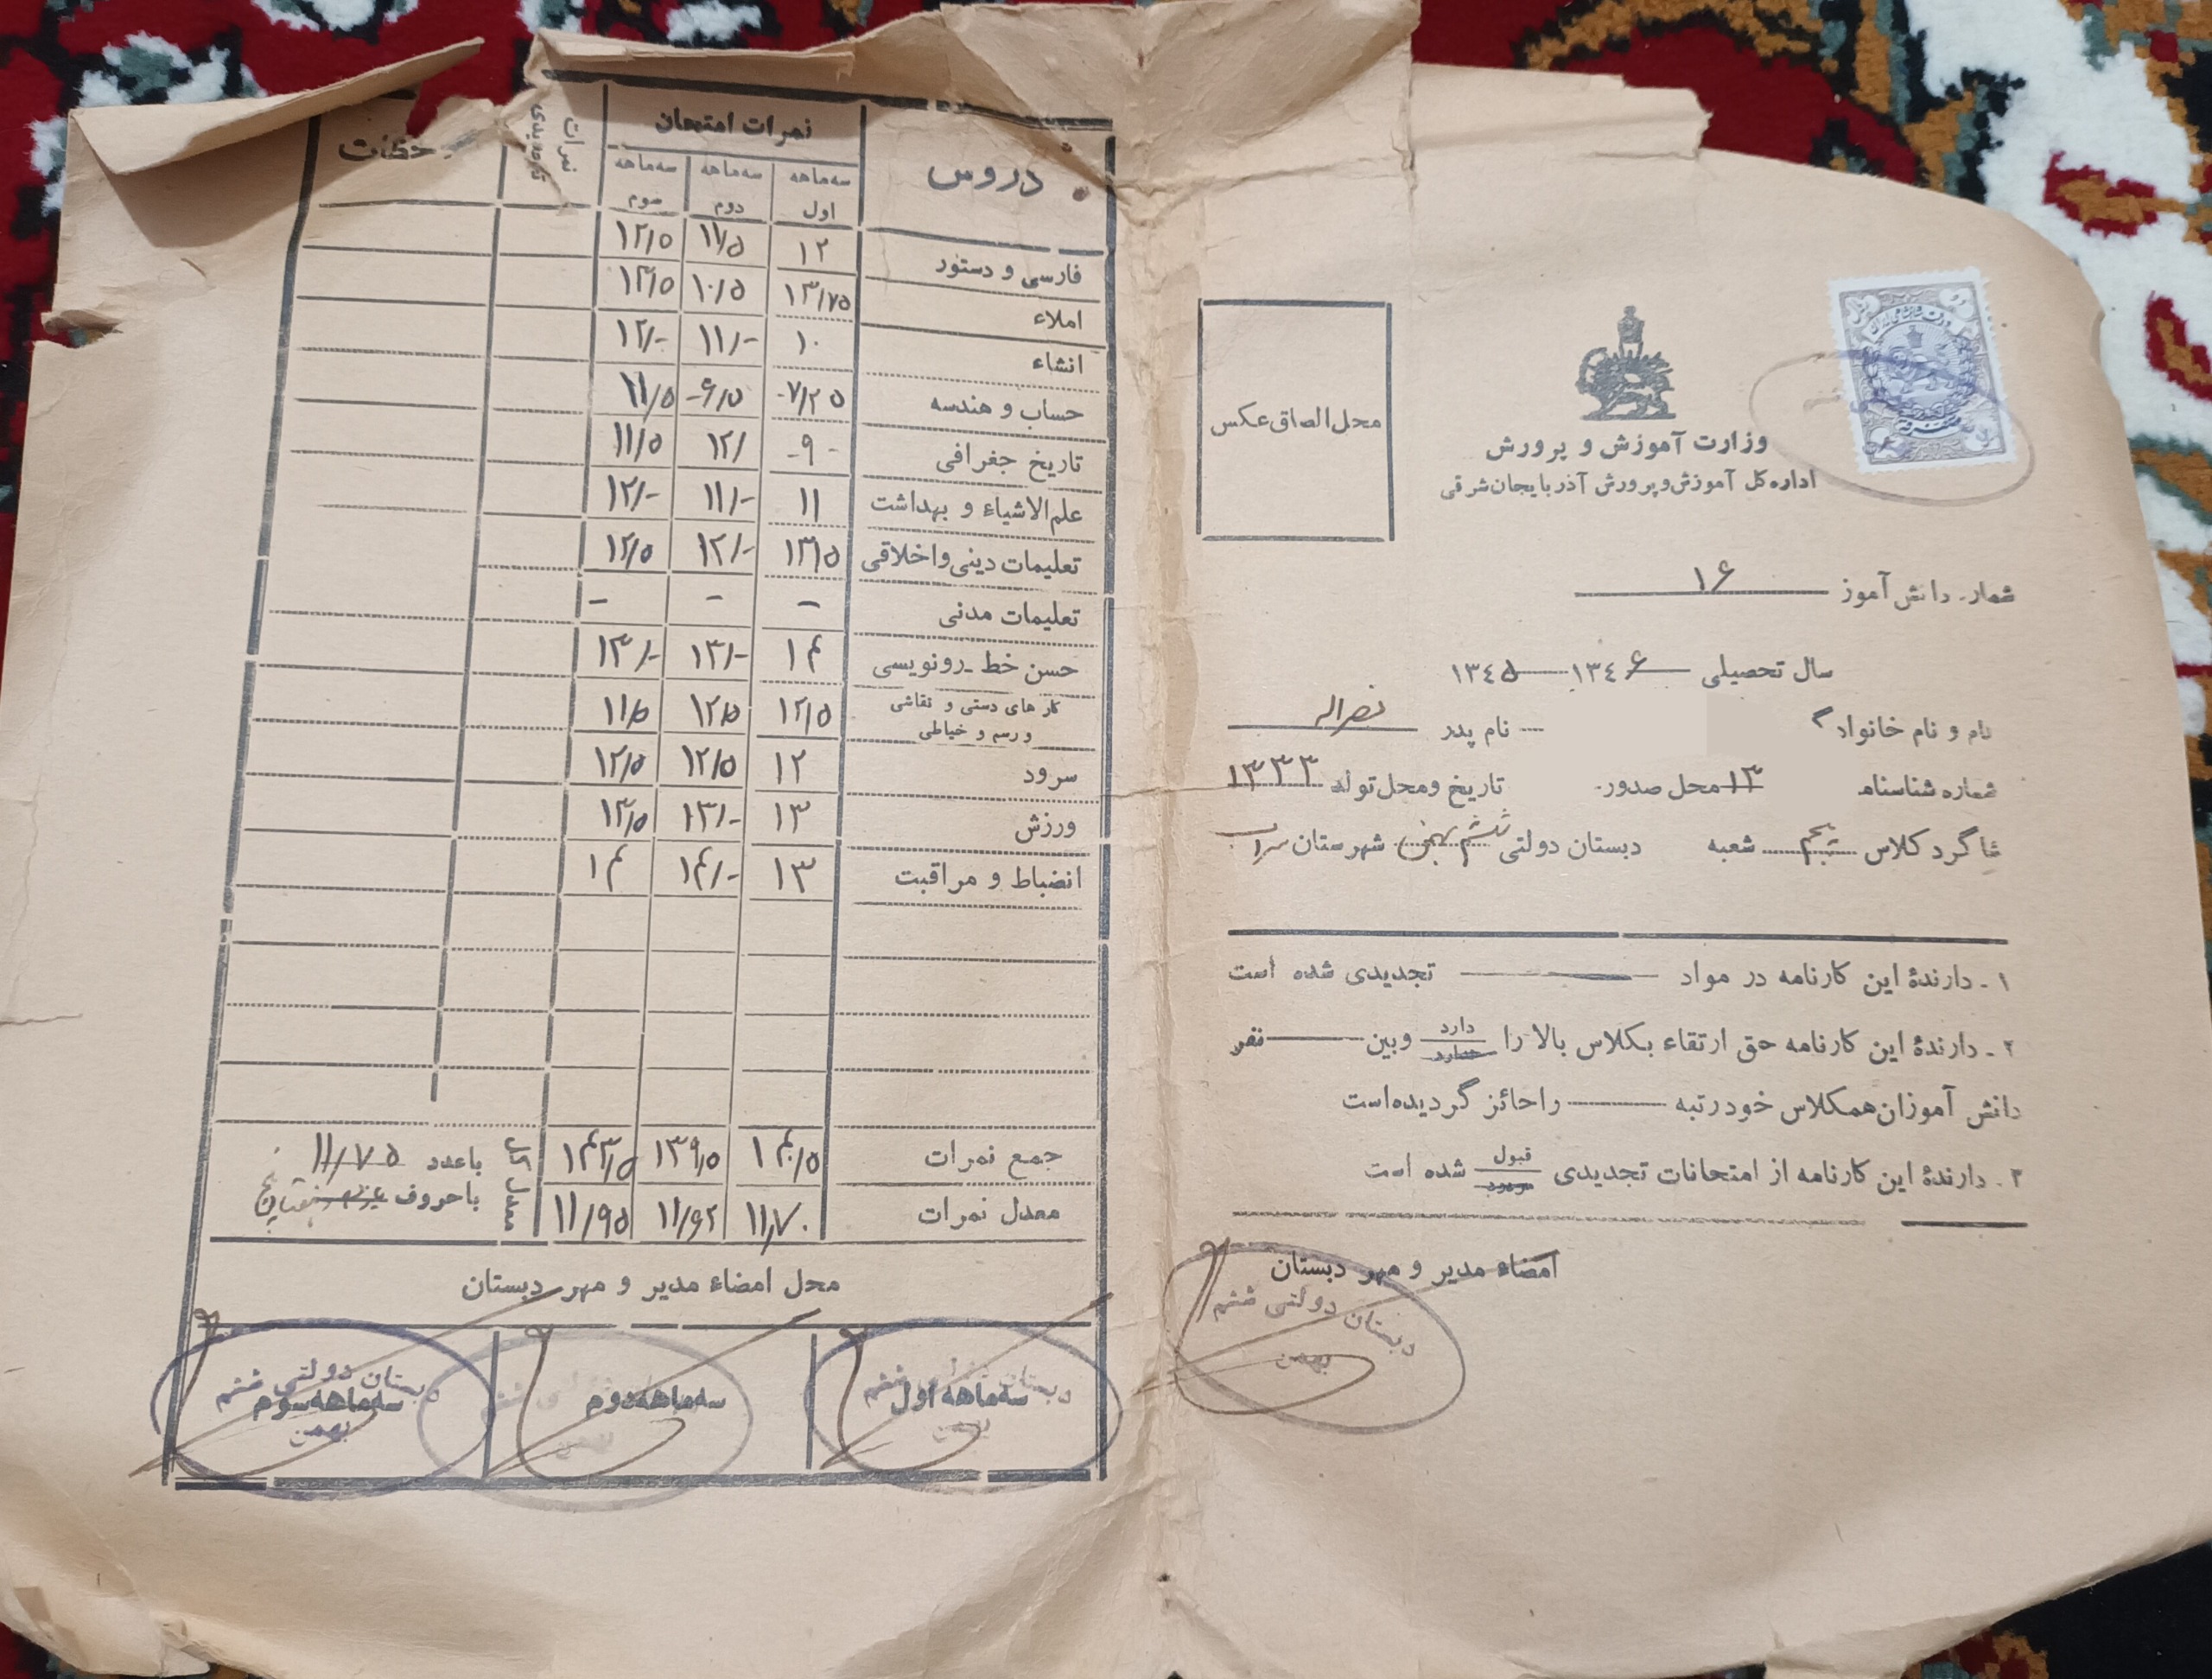 وزارت آموزش و پرورش
اداره کل آموزش و پرورش آذربایجان شرقی
محل الصاق عکس
شماره دانش آموز ۱۶
سال تحصیلی ۱۳۴۶ ۱۳۴۵
نام و نام خانوادگی نام پدر نصراله
شماره شناسنامه ۱۳ محل صدور تاریخ و محل تولد ۱۳۳۳
شاگرد کلاس پنجم شعبه دبستان دولتی ششم بهمن شهرستان سراب
۱ ـ دارندهٔ این کارنامه در مواد تجدیدی شده است
۲ ـ دارندهٔ این کارنامه حق ارتقاء بکلاس بالا را دارد ندارد و بین نفر
دانش آموزان همکلاس خود رتبه را حائز گردیده است
۳ ـ دارندهٔ این کارنامه از امتحانات تجدیدی قبول مردود شده است
امضاء مدیر و مهر دبستان
دبستان دولتی ششم
بهمن
دروس نمرات امتحان نمرات تجدیدی
سه ماهه اول سه ماهه دوم سه ماهه سوم
فارسی و دستور ۱۲ ۱۱/۵ ۱۲/۵
املاء ۱۳/۷۵ ۱۰/۵ ۱۳/۵
انشاء ۱۰ ۱۱/- ۱۲/-
حساب و هندسه ۷/۲۵- ۶/۵- ۱۱/۵
تاریخ جغرافی -۹- ۱۲/ ۱۱/۵
علم الاشیاء و بهداشت ۱۱ ۱۱/- ۱۲/-
تعلیمات دینی و اخلاقی ۱۳/۵ ۱۲/- ۱۲/۵
تعلیمات مدنی - - -
حسن خط ـ رونویسی ۱۴ ۱۳/- ۱۳/-
کارهای دستی و نقاشی ۱۲/۵ ۱۲/۵ ۱۱/۵
و رسم و خیاطی
سرود ۱۲ ۱۲/۵ ۱۲/۵
ورزش ۱۳ ۱۳/- ۱۳/۵
انضباط و مراقبت ۱۳ ۱۴/- ۱۴
جمع نمرات ۱۴۰/۵ ۱۳۹/۵ ۱۴۳/۵ معدل کل باعدد ۱۱/۷۵
معدل نمرات ۱۱/۷۰ ۱۱/۶۲ ۱۱/۹۵ باحروف
محل امضاء مدیر و مهر دبستان
سه ماهه اول سه ماهه دوم سه ماهه سوم
دبستان دولتی ششم
بهمن